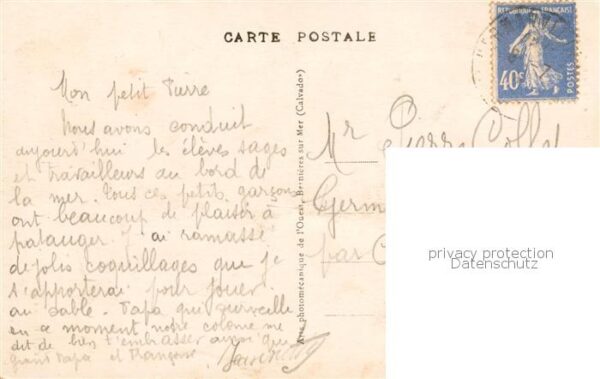 CARTE POSTALE
REPUBLIQUE FRANÇAISE
40c
POSTES
Mon petit Pierre
Nous avons conduit
aujourd'hui les élèves sages
et travailleurs au bord de
la mer. Tous ces petits garçons
ont beaucoup de plaisir à
patauger. J'ai ramassé
de jolis coquillages que je
t'apporterai pour jouer
au sable. Papa qui surveille
en ce moment notre colonie me
dit de bien t'embrasser ainsi que
grand papa et
Arts photomécanique de l'Ouest, Bernières sur Mer (Calvados)
Mr Pierre
Germ
par
privacy protection
Datenschutz